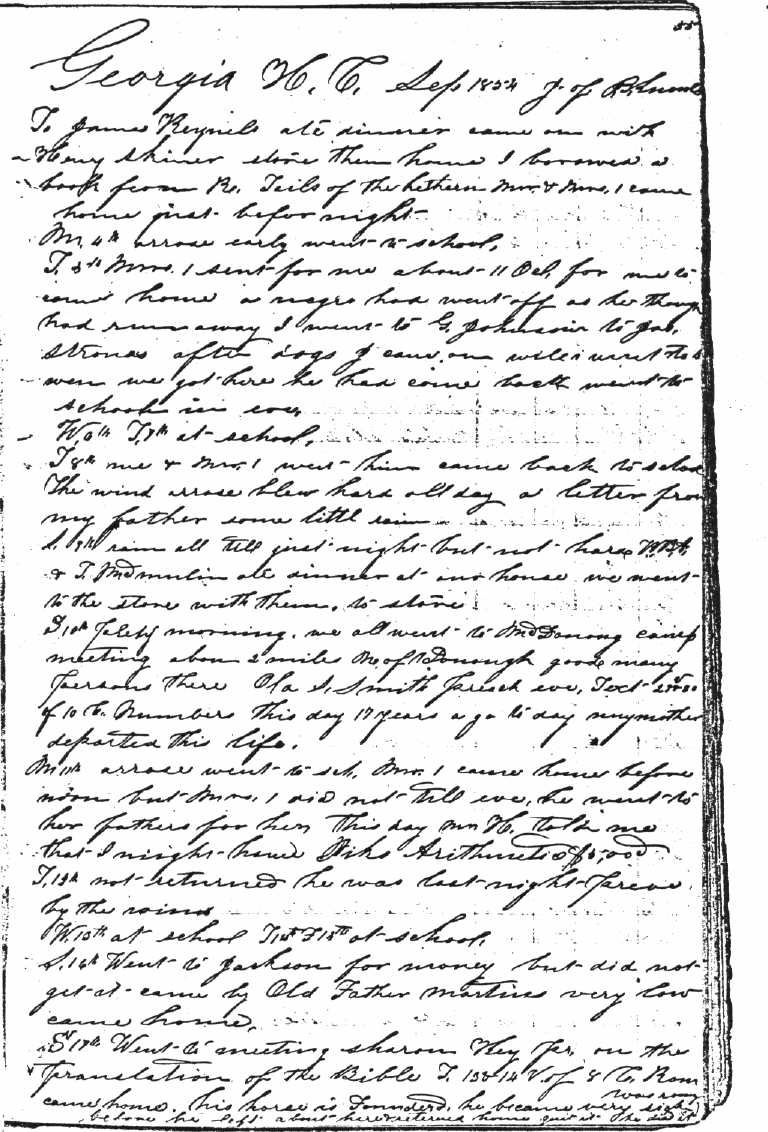 55
Georgia H. C. Sep 1854 J. of
To James Reynels ate dinner came on with
Henry Skiner store then home I borrowed a
book from Re. Teils of the Mr. & Mrs. 1 came
home just befor night
M. 4th arrose early went to school.
T. 5th Mrs. 1 sent for me about 11 Ocl. for me to
come home a negro had went off as he though
had run away I went to G. Johnson's to Jas.
after dogs J came on went to
wen we got here he had come back went to
school in eve,
W, 6th T, 7th at school,
T 8th me & Mrs. 1 went him came back to school
The wind arrose blew hard all day a letter from
my father some littl rain
S. 9th rain all till just night but not hard
& T. Mdmulin ate dinner at our house we went
to the store with them. to store
S 10th morning. we all went to McDonoug camp
meeting abou 2 miles of McDonough good many
persons there Old S. Smith preach eve, Text
of 10 C. Numbers this day 17 years ago to day my mother
departed this life.
M 11th arrose went to sch, Mr. 1 came home before
noon but Mrs. 1 did not till eve, he went to
her fathers for her, This day Mr H. told me
that I might have Pikes Arithmetic
T. 12th not returned he was last night
by the rains
W. 13th at school T 14th F 15th at school.
S. 16th Went to Jackson for money but did not
get it came by Old Father Martins very low
came home.
S 17th Went to meeting sharon Hey Jr. on the
translation of the Bible T. 13 & 14 V. of 8 C. Rom
was
came home. his horse is Founderd. he became very
before he left about here returned home